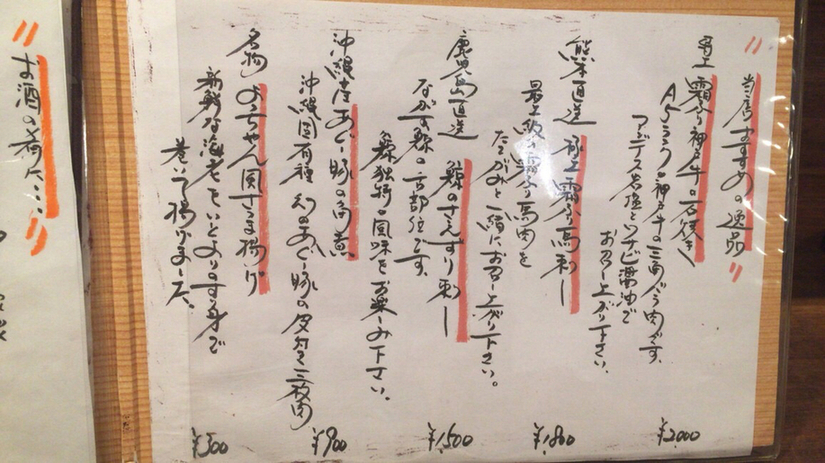 〃当店おすすめの逸品〃
極上 霜ふり神戸牛の石焼き
A5ランクの神戸牛の三角バラ肉です。
アンデス岩塩とワサビ醤油で
お召し上がり下さい。
¥2,000
熊本直送 極上霜ふり馬刺し
最上級の霜ふり馬肉を
たてがみと一緒にお召し上がり下さい。
¥1,800
鹿児島直送 鯨のさえずり刺し
ながす鯨の舌部位です。
鯨独特の風味をお楽しみ下さい。
¥1,500
沖縄産あぐー豚の角煮
沖縄固有種 幻のあぐー豚の皮付き三枚肉
¥900
名物 ようちゃん風さつま揚げ
新鮮な海老をいとよりのすり身で
巻いて揚げました。
¥500
〃お酒の肴に…〃